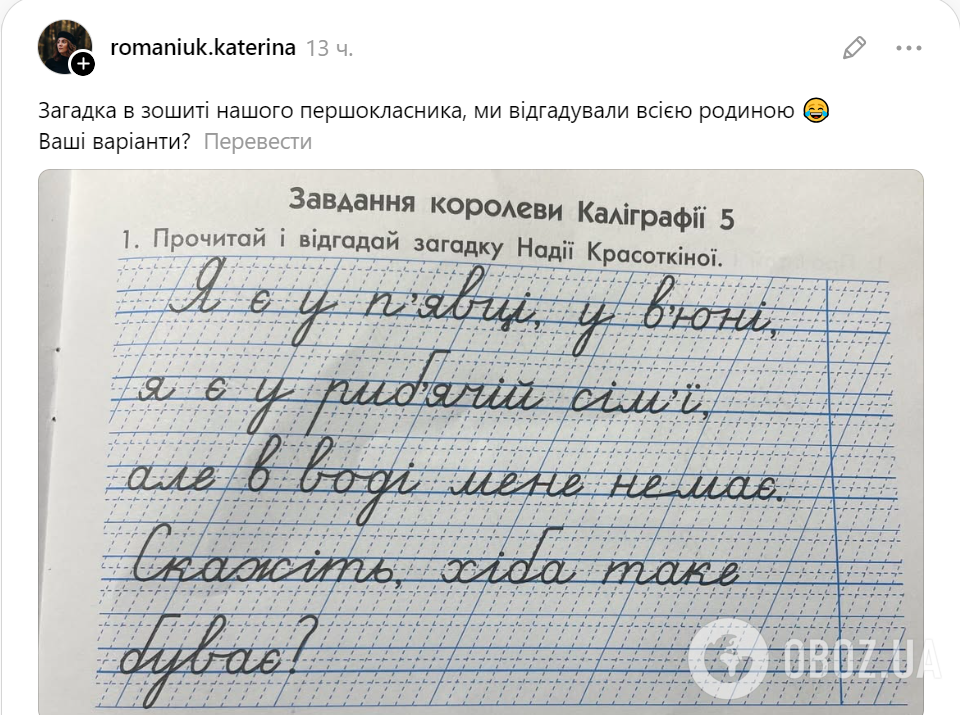 romaniuk.katerina 13 ч.
Загадка в зошиті нашого першокласника, ми відгадували всією родиною 😂
Ваші варіанти? Перевести
Завдання королеви Каліграфії 5
1. Прочитай і відгадай загадку Надії Красоткіної.
Я є у п'явці, у в'юні,
я є у риб'ячій сім'ї,
але в воді мене немає.
Скажіть, хіба таке
буває?
OBOZ.UA